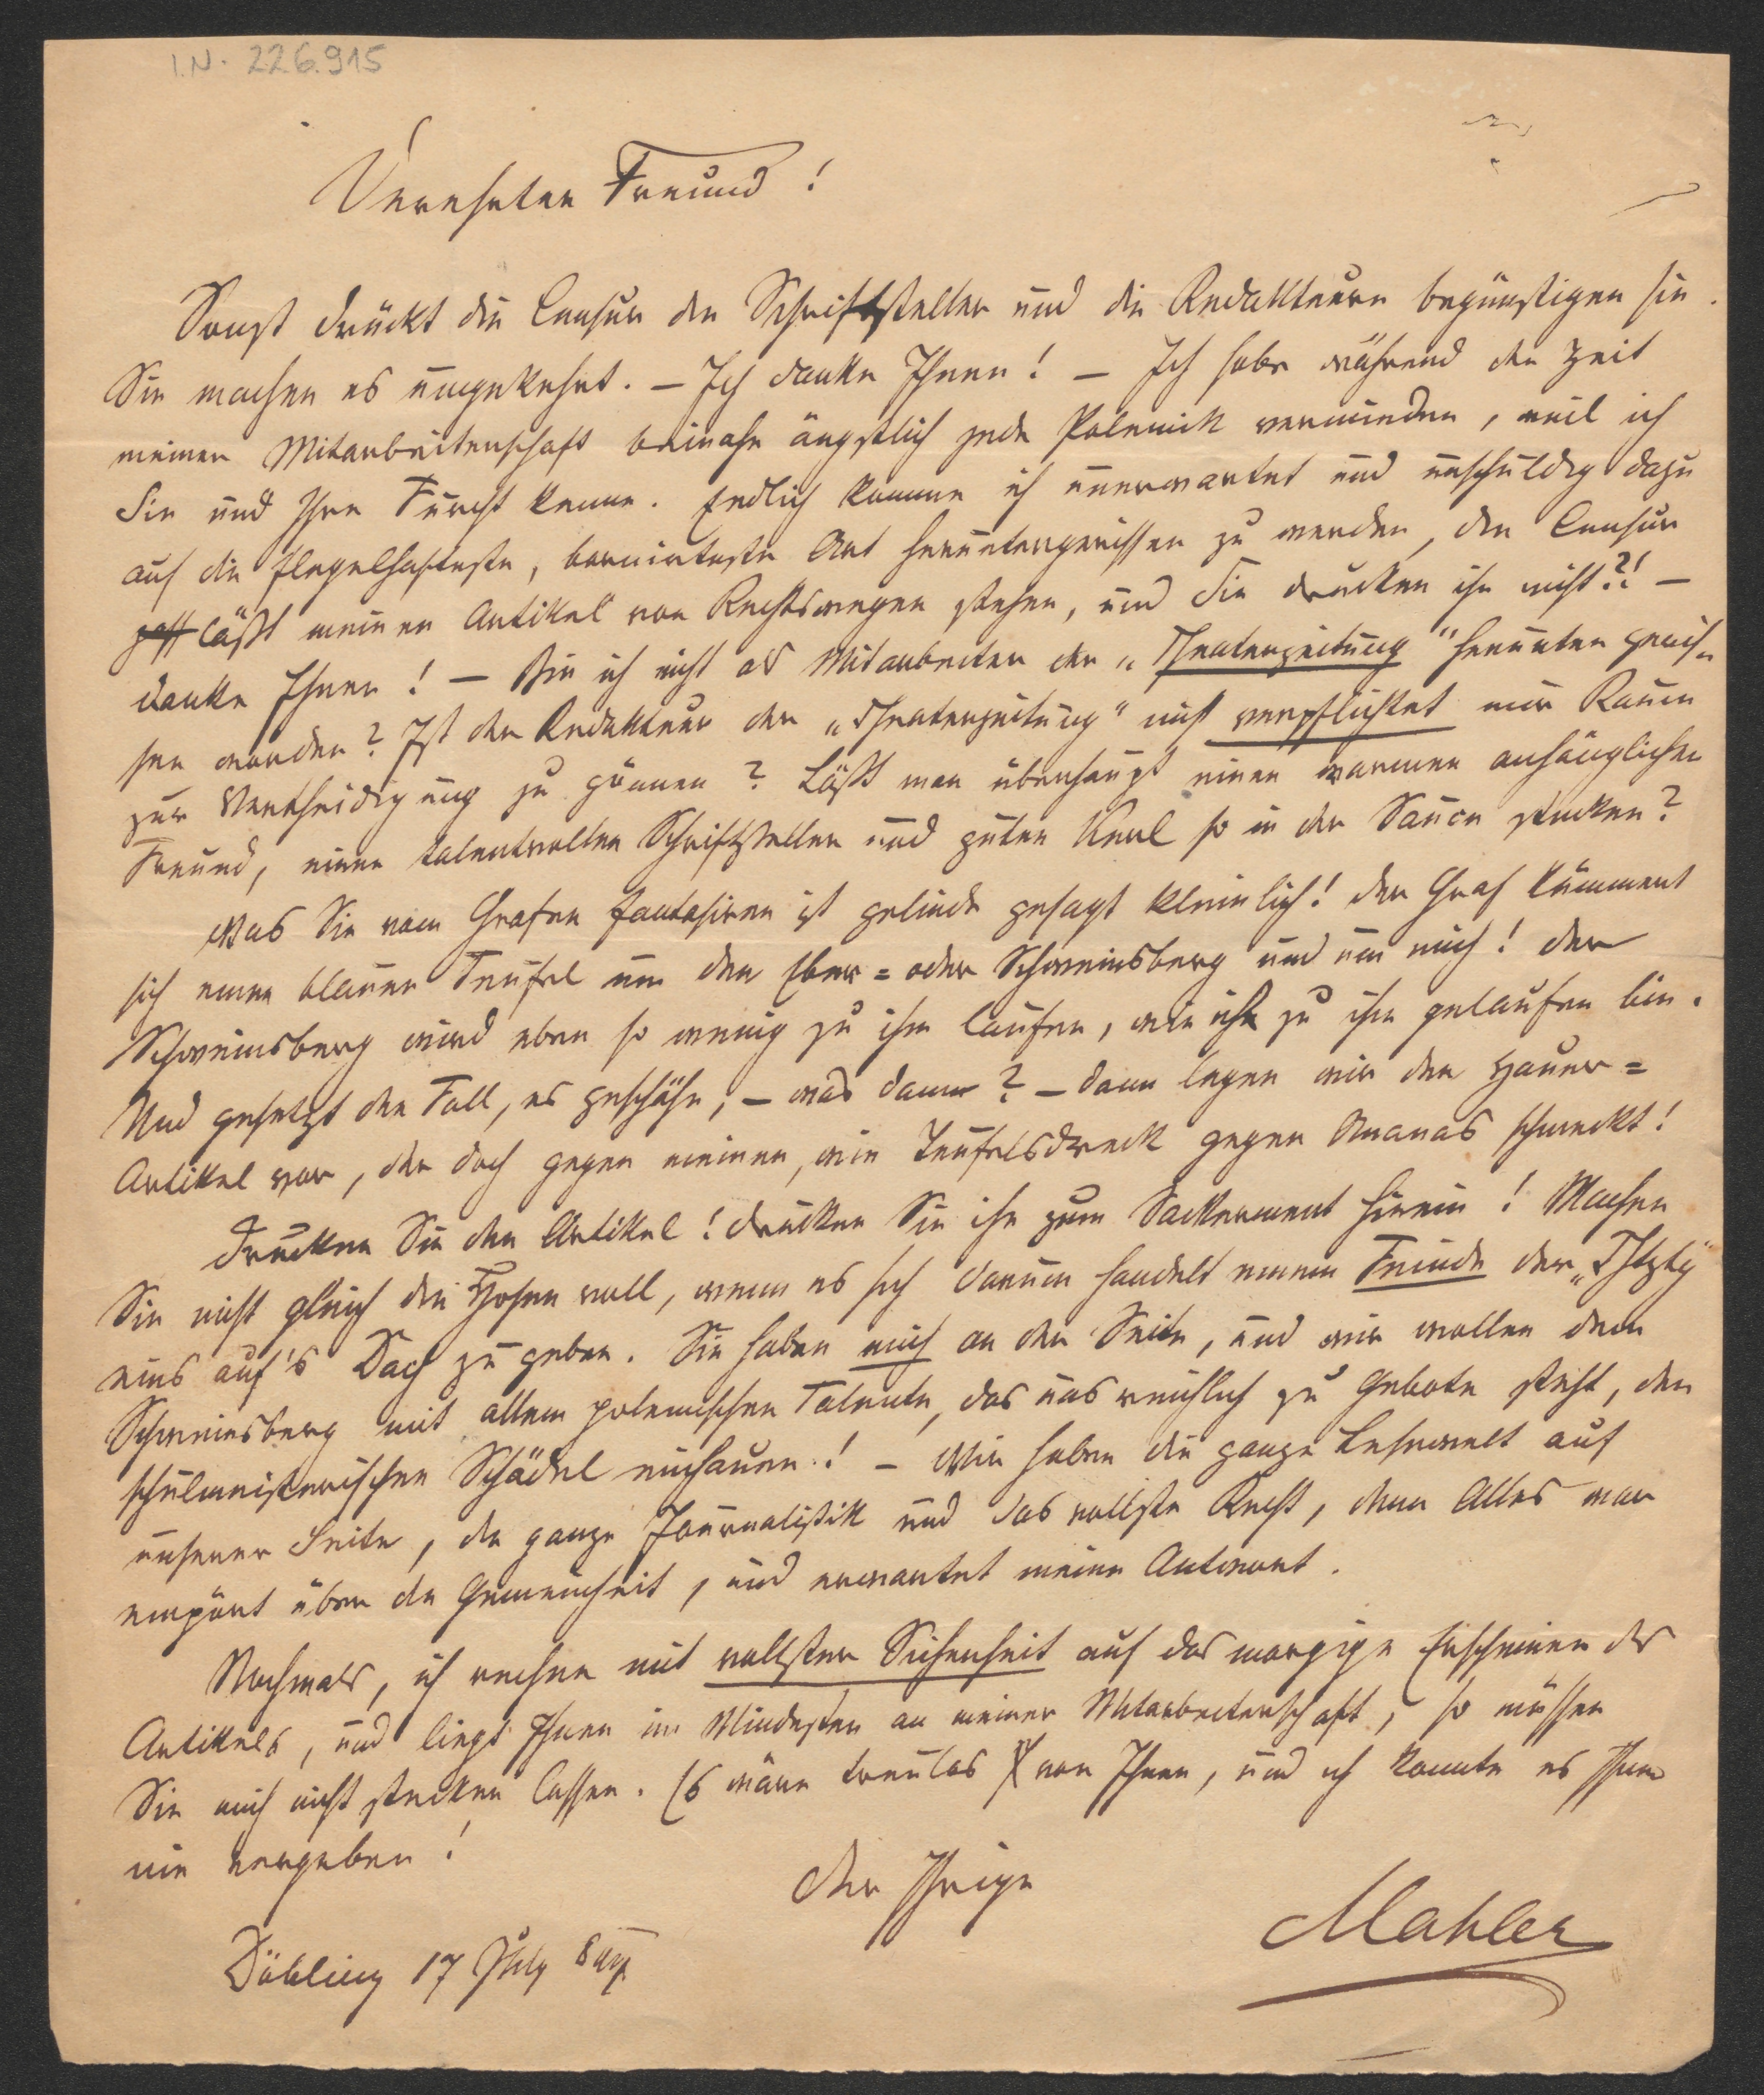 I.N. 226.915
Verehrter Freund!
Sonst drückt die Censur den Schriftsteller und die Redakteure begünstigen sie.
Sie machen es umgekehrt. – Ich danke Ihnen! – Ich habe während der Zeit
meiner Mitarbeiterschaft beinahe ängstlich jede Polemik vermieden, weil ich
Sie und Ihre Furcht kenne. Endlich komme ich unerwartet und unschuldig dazu
auf die flegelhafteste, bornirteste Art heruntergerissen zu werden, die Censur
läßt meinen Artikel von Rechtswegen stehen, und Sie drucken ihn nicht?! –
danke Ihnen! – Bin ich nicht als Mitarbeiter der „Theaterzeitung" herunter geris-
sen worden? Ist der Redakteur der „Theaterzeitung" nicht verpflichtet mir Raum
zur Vertheidigung zu gönnen? Läßt man überhaupt einen warmen anhänglichen
Freund, einen talentvollen Schriftsteller und guten Kerl so in der Sauce stecken?
Was Sie vom Grafen fantasiren ist gelinde gesagt kleinlich! Der Graf kümmert
sich einen blauen Teufel um den Eber= oder Schweinsberg und um mich! Der
Schweinsberg wird eben so wenig zu ihm laufen, wie ich zu ihm gelaufen bin.
Und gesetzt den Fall, es geschähe, – was dann? – dann legen wir den Hauer=
Artikel vor, der doch gegen meinen, wie Teufelsdreck gegen Ananas schmeckt!
Drucken Sie den Artikel! drucken Sie ihn zum Sackerment hinein! Machen
Sie nicht gleich die Hosen voll, wenn es sich darum handelt einem Feinde der „Thztg"
eins auf's Dach zu geben. Sie haben mich an der Seite, und wir wollen dem
Schweinsberg mit allem polemischen Talente, das uns reichlich zu Gebote steht, den
schulmeisterischen Schädel einhauen! – Wir haben die ganze Lesewelt auf
unserer Seite, die ganze Journalistik und das vollste Recht, denn Alles war
empört über die Gemeinheit, und erwartet meine Antwort.
Nochmals, ich rechne mit vollster Sicherheit auf das morgige Erscheinen des
Artikels, und liegt Ihnen im Mindesten an meiner Mitarbeiterschaft, so müssen
Sie mich nicht stecken lassen. Es wäre treulos von Ihnen, und ich könnte es Ihnen
nie vergeben!
Der Ihrige
Mahler
Döbling 17 July